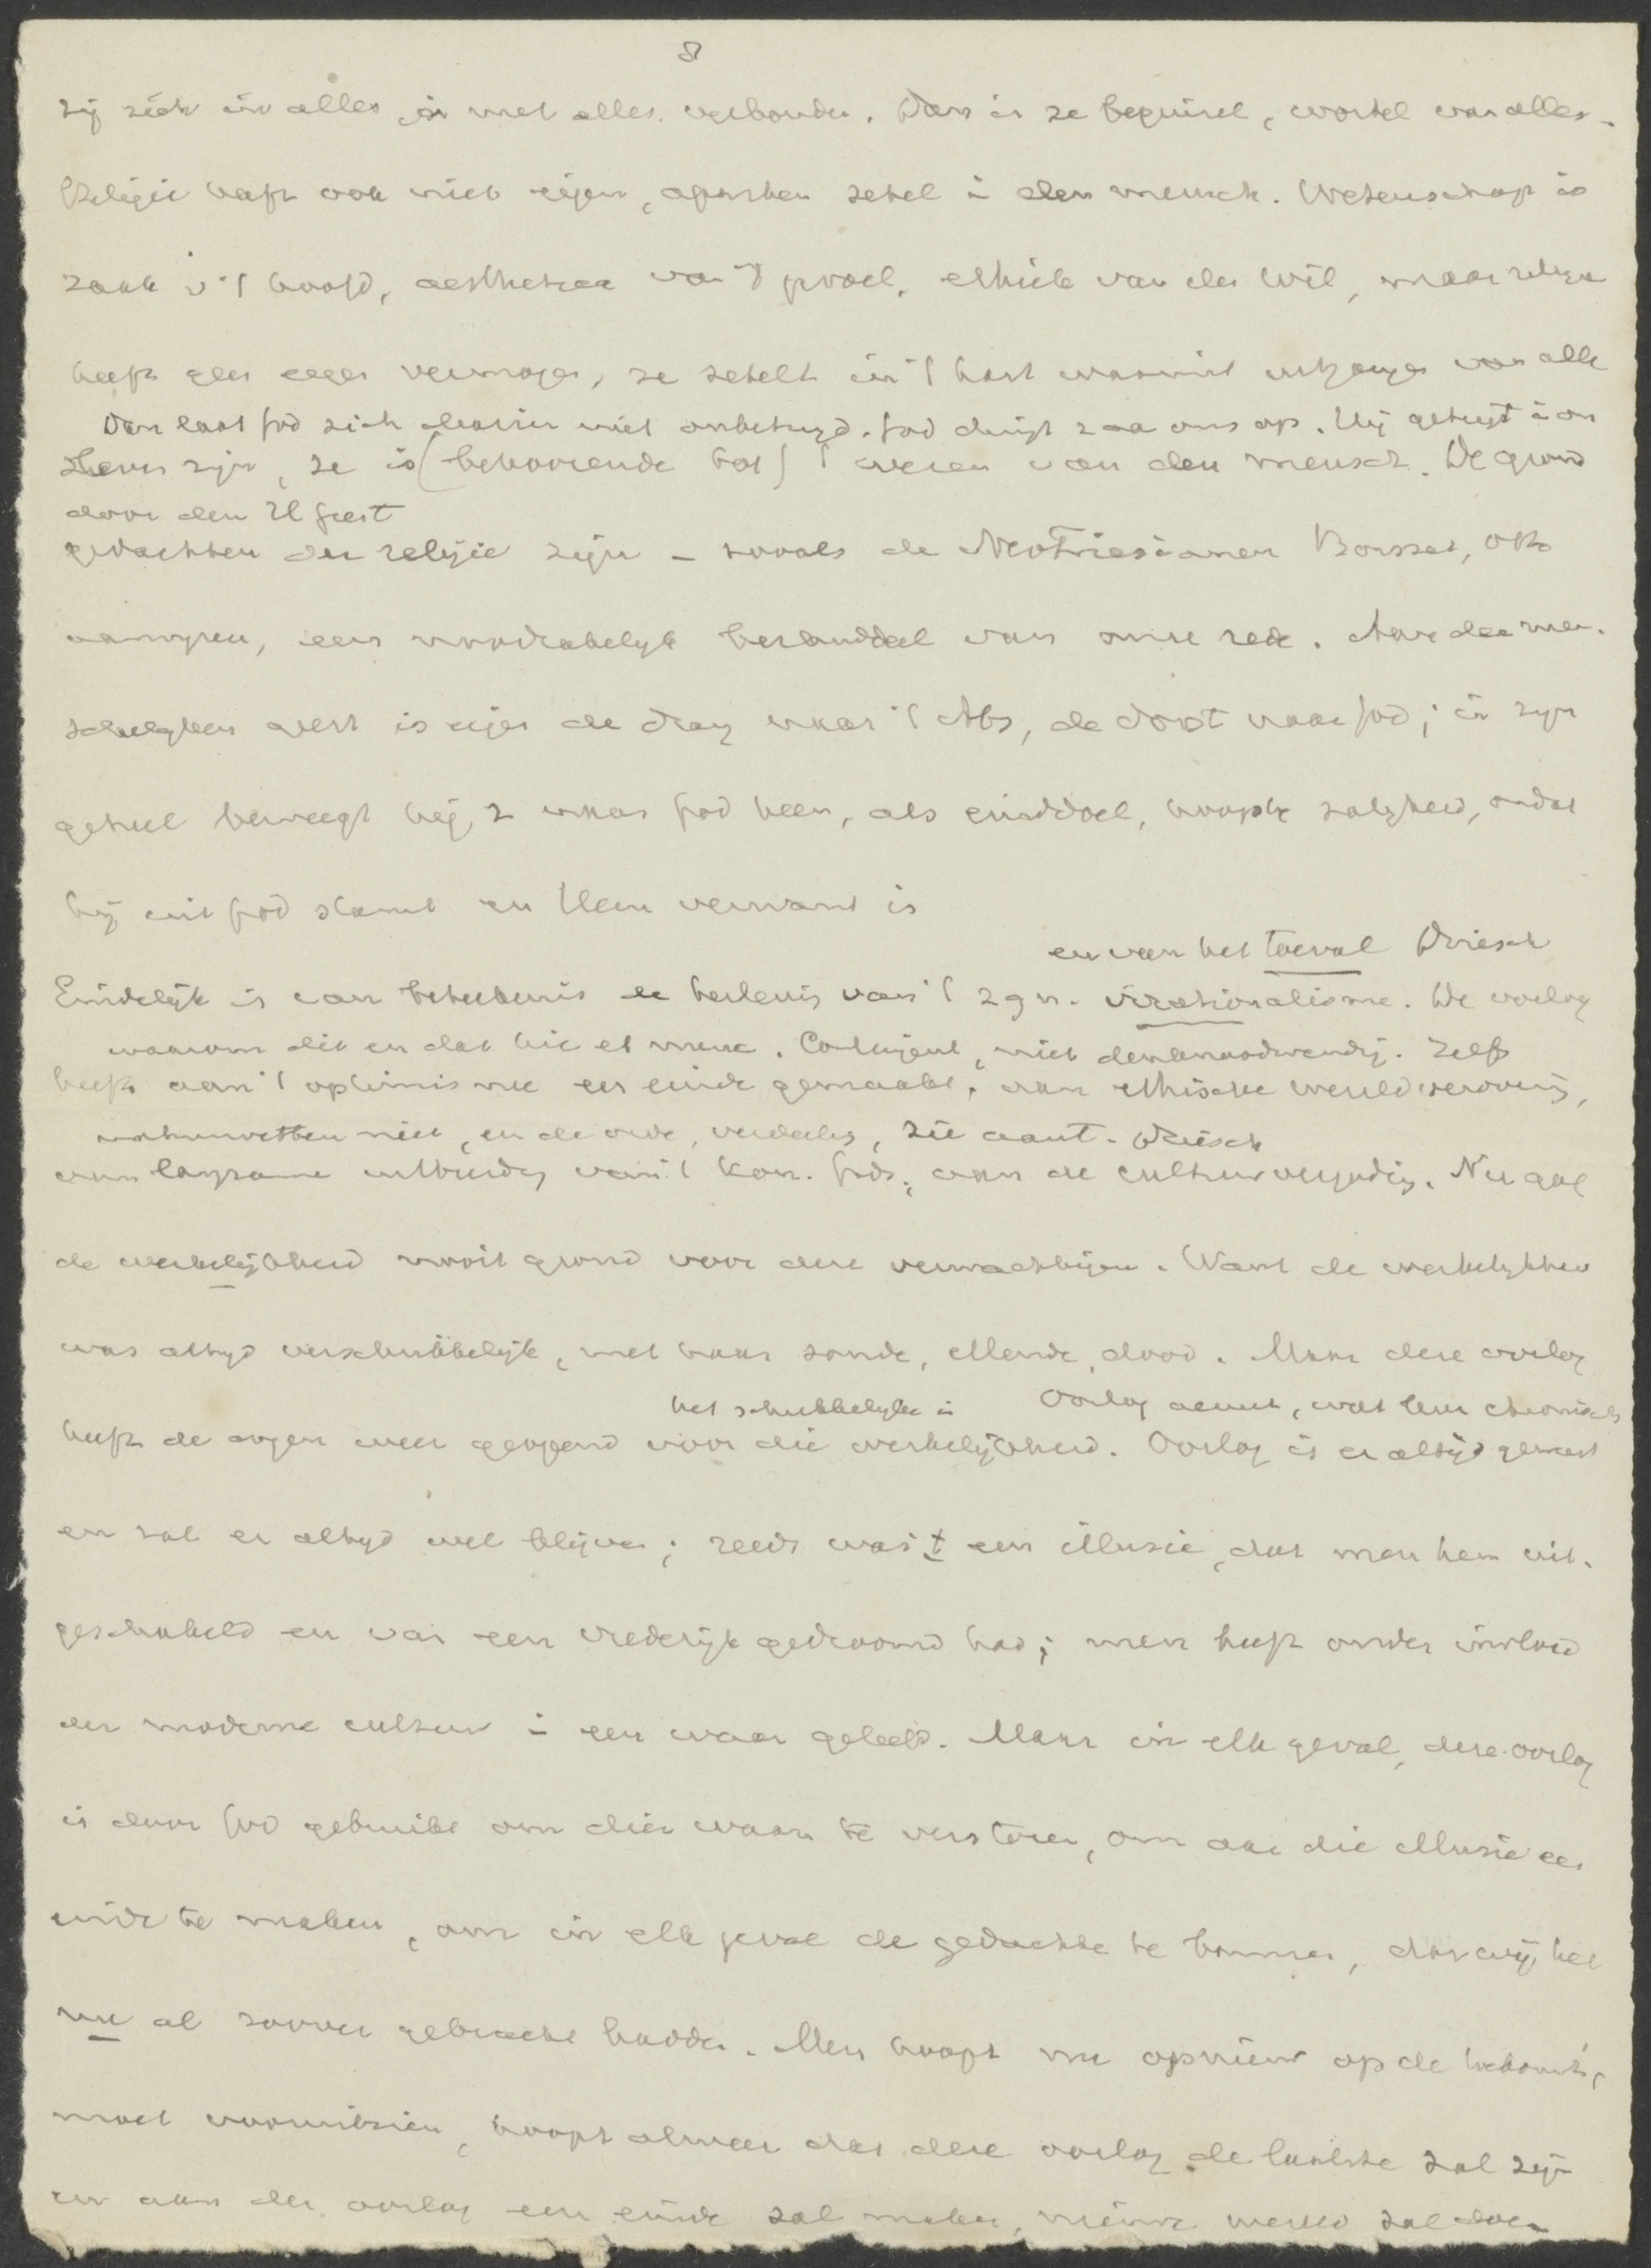 8
zij zich in alles, is met alles verbonden. Dan is ze beginsel, wortel van alles.
Religie heeft ook niet eigen, aparten zetel i den mensch. Wetenschap is
zaak v 't hoofd, aesthetica van 't gevoel, ethiek van den wil, maar religie
heeft geen eigen vermogen, ze zetelt in 't hart waaruit uitgangen van alle
Dan laat God zich daarin niet onbetuigd. God dringt z aan ons op. Hij getuigt i on
leven zijn, ze is (behoorende tot) 't wezen van den mensch. De grond
door den H Geest
gedachten der religie zijn – zooals de NeoFriesianen Bousset, Otto
aanwijzen, een noodzakelijk bestanddeel van onze rede. Aan den men-
schelijken geest is eigen de drang naar 't Abs, de dorst naar God; in zijn
geheel beweegt hij z naar God heen, als einddoel, hoogste zaligheid, omdat
hij uit God stamt en Hem verwant is
en van het toeval Driesch
Eindelijk is van beteekenis de herlevig van 't zgn. irrationalisme. De oorlog
waarom dit en dat hic et nunc. Contingent, niet denknoodwendig. Zelfs
heeft aan 't optimisme een einde gemaakt, aan ethische wereldverovering,
natuurwetten niet, en de orde, verdeelg, zie aant. Driesch
aan langzame uitbreidg van 't Kon. Gods, aan de cultuurvergoding. Nu gaf
de werkelijkheid nooit grond voor deze verwachtingen. Want de werkelijkheid
was altijd verschrikkelijk, met haar zonde, ellende, dood. Maar deze oorlog
het schrikkelijke i Oorlog acuut, wat leven chronisch
heeft de oogen weer geopend voor die werkelijkheid. Oorlog is er altijd geweest
en zal er altijd wel blijven; reeds was 't een illusie, dat men hem uit-
geschakeld en van een vrederijk gedroomd had; men heeft onder invloed
der moderne cultuur i een waan geleefd. Maar in elk geval, deze oorlog
is door God gebruikt om dien waan te verstoren, om aan die illusie een
einde te maken, om in elk geval de gedachte te bannen, dat wij het
nu al zoover gebracht hadden. Men hoopt nu opnieuw op de toekomst,
moet vooruitzien, hoopt alweer dat deze oorlog de laatste zal zijn
en aan den oorlog een einde zal maken, nieuwe wereld zal doen